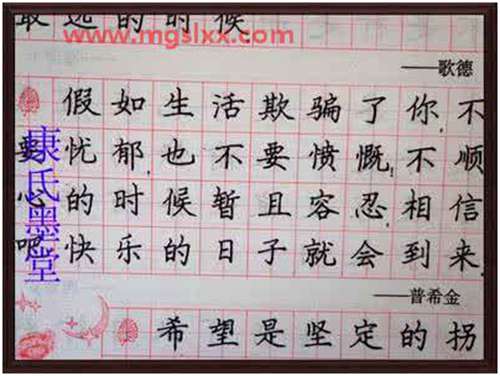 最远的时候
www.mgslxx.com
——歌德
假如生活欺骗了你,不
要忧郁,也不要愤慨,不顺
心的时候暂且容忍,相信
吧,快乐的日子就会到来.
康氏墨堂
——普希金
希望是坚定的拐